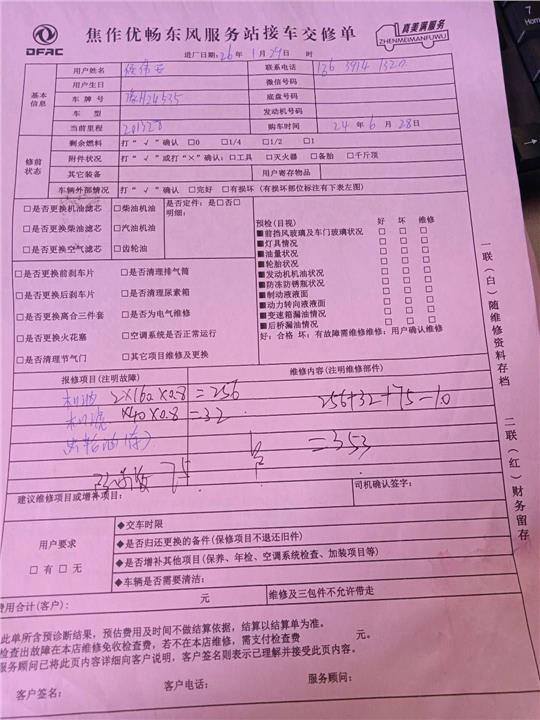 DFAC
焦作优畅东风服务站接车交修单
真美满服务
ZHENMEIMANFUWU
进厂日期: 26 年 1 月 29 日 时
基本信息
用户姓名
联系电话 136 3914 1320
用户生日
微信号码
车牌号 豫H24535
底盘号码
车型
发动机号码
当前里程 201328
购车时间 24 年 6 月 28 日
修前状态
剩余燃料 打“√”确认 □0 □1/4 □1/2 □1
附件状况 打“√”或打“×”确认: □工具 □灭火器 □备胎 □千斤顶
其它装备
用户寄存物品
车辆外部情况 打“√”确认 □完好 □有损坏 (有损坏部位标注有下表左图)
□是否更换机油滤芯 □柴油机油 是否定件: 是□否□
明细:
□是否更换柴油滤芯 □汽油机油
□是否更换空气滤芯 □齿轮油
预检(目视) 好 坏 维修
■前挡风玻璃及车门玻璃状况 □ □ □
■灯具情况 □ □ □
■油量状况 □ □ □
■轮胎状况 □ □ □
■发动机机油状况 □ □ □
■防冻防锈瓶状况 □ □ □
■制动液液面 □ □ □
■动力转向液液面 □ □ □
■变速箱漏油情况 □ □ □
■后桥漏油情况 □ □ □
好: 合格 坏: 有故障需维修维修: 用户确认维修
□是否更换前刹车片 □是否清理排气筒
□是否更换后刹车片 □是否清理尿素箱
□是否更换离合三件套 □是否为电气维修
□是否更换火花塞 □空调系统是否正常运行
□是否清理节气门 □其它项目维修及更换
报修项目(注明故障) 维修内容(注明维修部件)
机油 2×160×0.8=256
256+32+75-10
机滤 ×40×0.8=32
=353
75
建议维修项目或增补项目:
司机确认签字:
用户要求
□有 □无
◆交车时限
◆是否归还更换的备件(保修项目不退还旧件)
◆是否增补其他项目(保养、年检、空调系统检查、加装项目等)
◆车辆是否需要清洁:
费用合计(客户): 元 维修及三包件不允许带走
此单所含预诊断结果，预估费用及时间不做结算依据，结算以结算单为准。
检查出故障在本店维修免收检查费，若不在本店维修，需支付检查费 元。
服务顾问已将此页内容详细向客户说明，客户签名则表示已理解并接受此页内容。
客户签名: 客户电话: 服务顾问:
一联(白)随维修资料存档
二联(红)财务留存